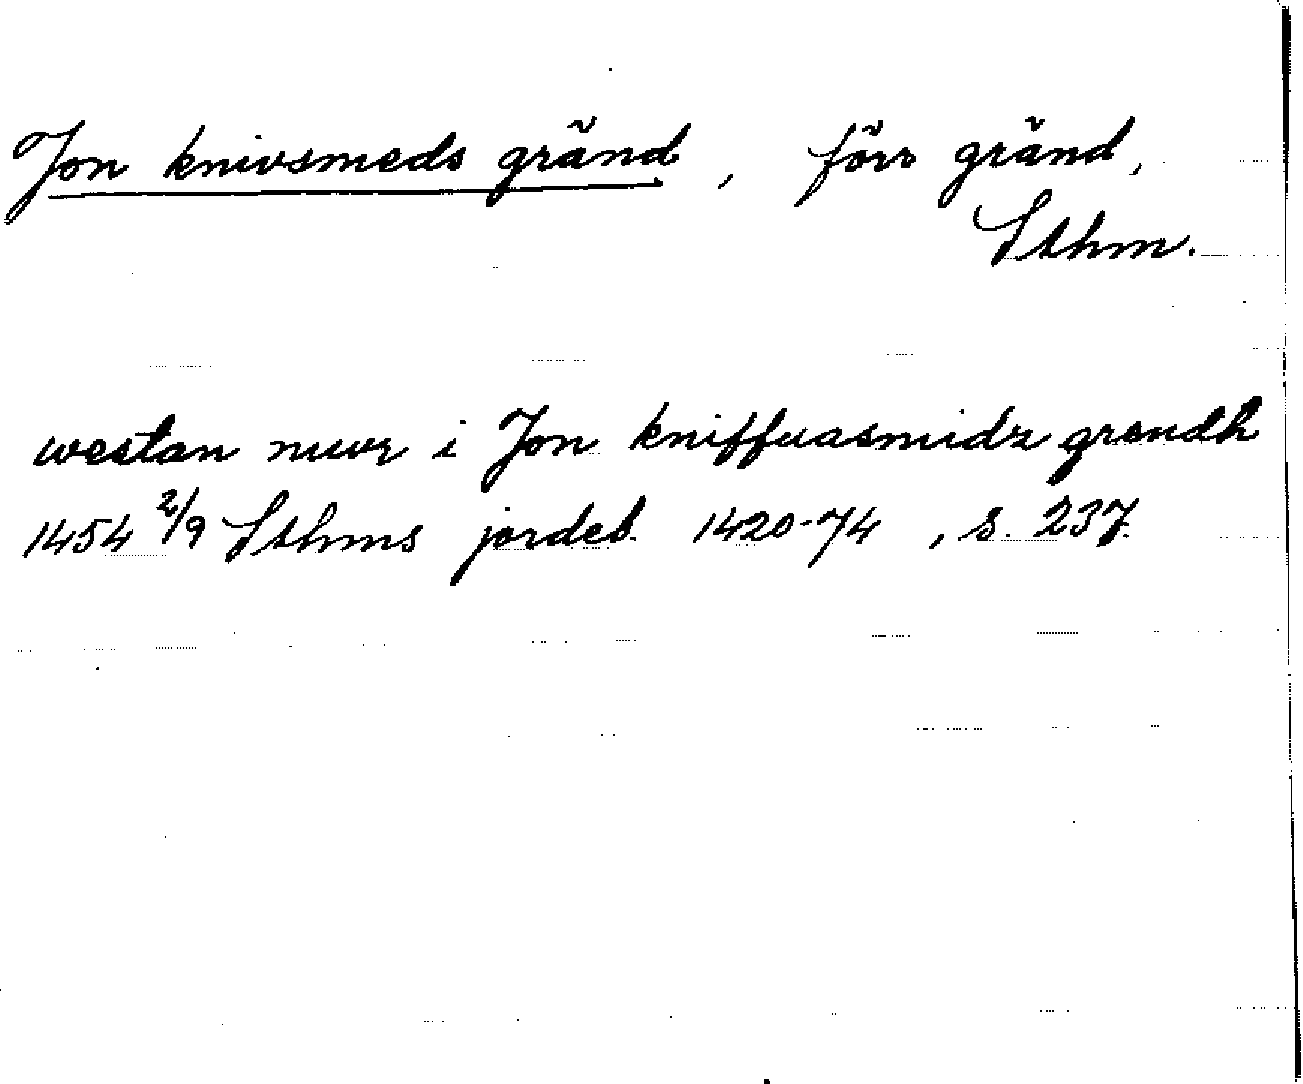 Jon knivsmeds gränd, förr gränd,
Sthm.
westan mwr i Jon kniffuasmidz grendh
1454 2/9 Sthms jordeb. 1420-74, s. 237.